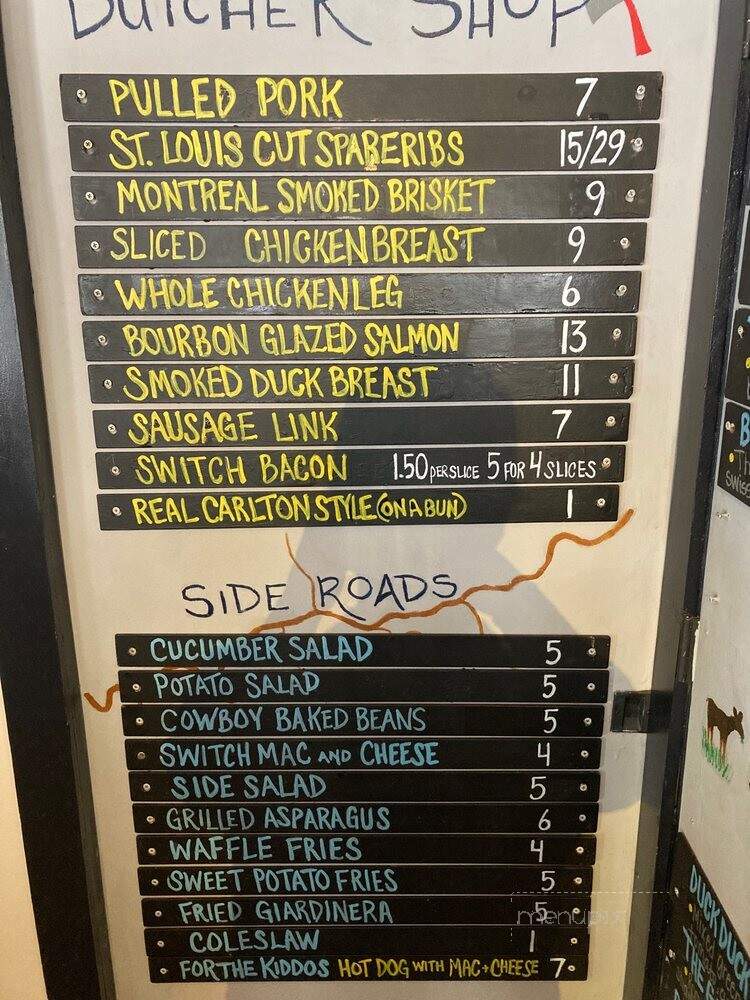 BUTCHER SHOP
PULLED PORK 7
ST. LOUIS CUT SPARERIBS 15/29
MONTREAL SMOKED BRISKET 9
SLICED CHICKEN BREAST 9
WHOLE CHICKEN LEG 6
BOURBON GLAZED SALMON 13
SMOKED DUCK BREAST 11
SAUSAGE LINK 7
SWITCH BACON 1.50 PER SLICE 5 FOR 4 SLICES
REAL CARLTON STYLE (ON A BUN) 1
SIDE ROADS
CUCUMBER SALAD 5
POTATO SALAD 5
COWBOY BAKED BEANS 5
SWITCH MAC AND CHEESE 4
SIDE SALAD 5
GRILLED ASPARAGUS 6
WAFFLE FRIES 4
SWEET POTATO FRIES 5
FRIED GIARDINERA 5
COLESLAW 1
FOR THE KIDDOS HOT DOG WITH MAC + CHEESE 7
menupix
DUCK DUCK
THE